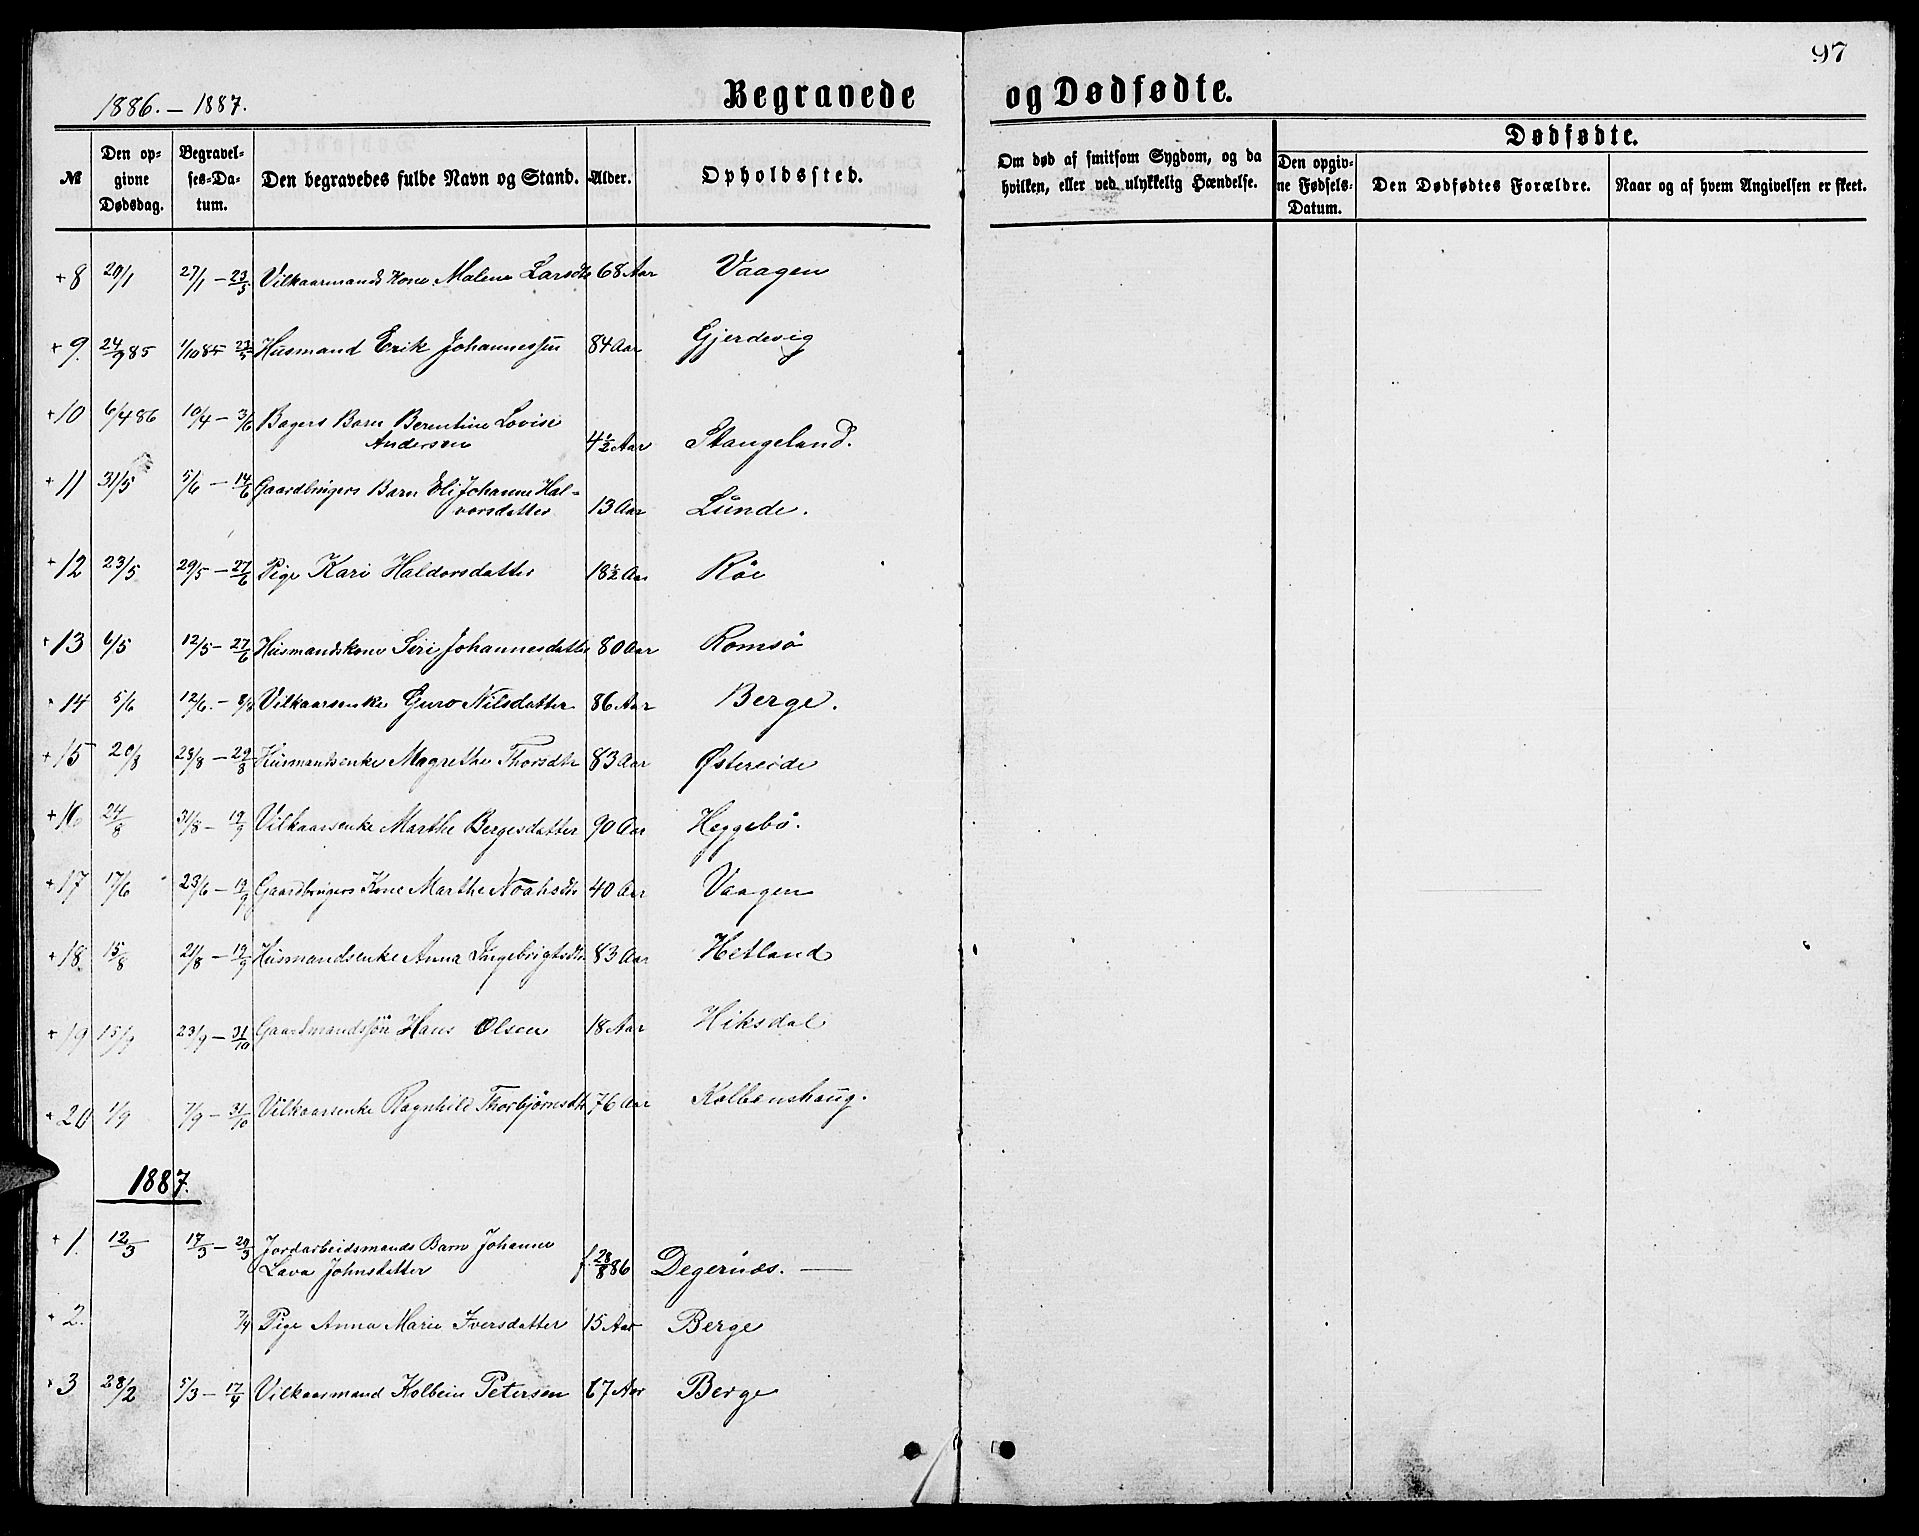 97
1886. – 1887.
Begravede
og Dødfødte.
№
Den op-
givne
Dødsdag.
Begravel-
ses-Da-
tum.
Den begravedes fulde Navn og Stand.
Alder.
Opholdssted.
Om død af smitsom Sygdom, og da
hvilken, eller ved ulykkelig Hændelse.
Dødfødte.
Den opgiv-
ne Fødsels-
Datum.
Den Dødfødtes Forældre.
Naar og af hvem Angivelsen er skeet.
+ 8 20/1 27/1 – 23/5 Vilkaarmands Kone Malene Larsdtr 68 Aar Vaagen
+ 9. 24/9 85 1/10 85 23/5 Husmand Erik Johannessen 84 Aar Gjerdevig
+ 10 6/4 86 10/4 – 3/6 Bagers Barn Berentine Lovise
Andersen 4½ Aar Stangeland.
+ 11 31/5 5/6 – 14/6 Gaardbrugers Barn Eli Johanne Hal-
vorsdatter 13 Aar Lunde.
+ 12 23/5 29/5 – 27/6 Pige Kari Haldorsdatter 18½ Aar Röe
+ 13 6/5 12/5 – 27/6 Husmandskone Siri Johannesdatter 80 Aar Romsö
+ 14 5/6 12/6. – 8/8 Vilkaarsenke Guro Nilsdatter 86 Aar Berge.
+ 15 20/8 28/8 – 29/8 Husmandsenke Magrethe Thorsdtr 83 Aar Østereide
+ 16 24/8 31/8 – 19/9 Vilkaarsenke Marthe Bergesdatter 90 Aar Heggebö.
+ 17 17/6 23/6 – 19/9 Gaardbrugers Kone Marthe Noahsdtr 40 Aar Vaagen
+ 18. 15/8 21/8 – 19/9 Husmandsenke Anna Ingebrigtsdtr 83 Aar Hetland
+ 19 15/9 23/9 – 31/10 Gaardmandssön Hans Olsen 18 Aar Hiksdal
+ 20 1/9 7/9 – 31/10 Vilkaarsenke Ragnhild Thorbjörnsdtr 76 Aar Kolbenshaug.
1887.
+ 1. 12/3 17/3 – 29/3 Jordarbeidsmands Barn Johanne
Lava Johnsdatter f. 28/8 86 Degernæs. —
+ 2. 7/4 Pige Anna Marie Iversdatter 15 Aar Berge
+ 3 28/2 5/3 – 17/4 Vilkaarmand Kolbein Petersen 67 Aar Berge